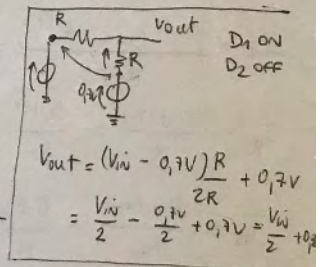 R
Vout
D1 ON
R
D2 OFF
0,7V
Vout = (Vin - 0,7V) R / 2R + 0,7V
= Vin / 2 - 0,7V / 2 + 0,7V = Vin / 2 + 0,